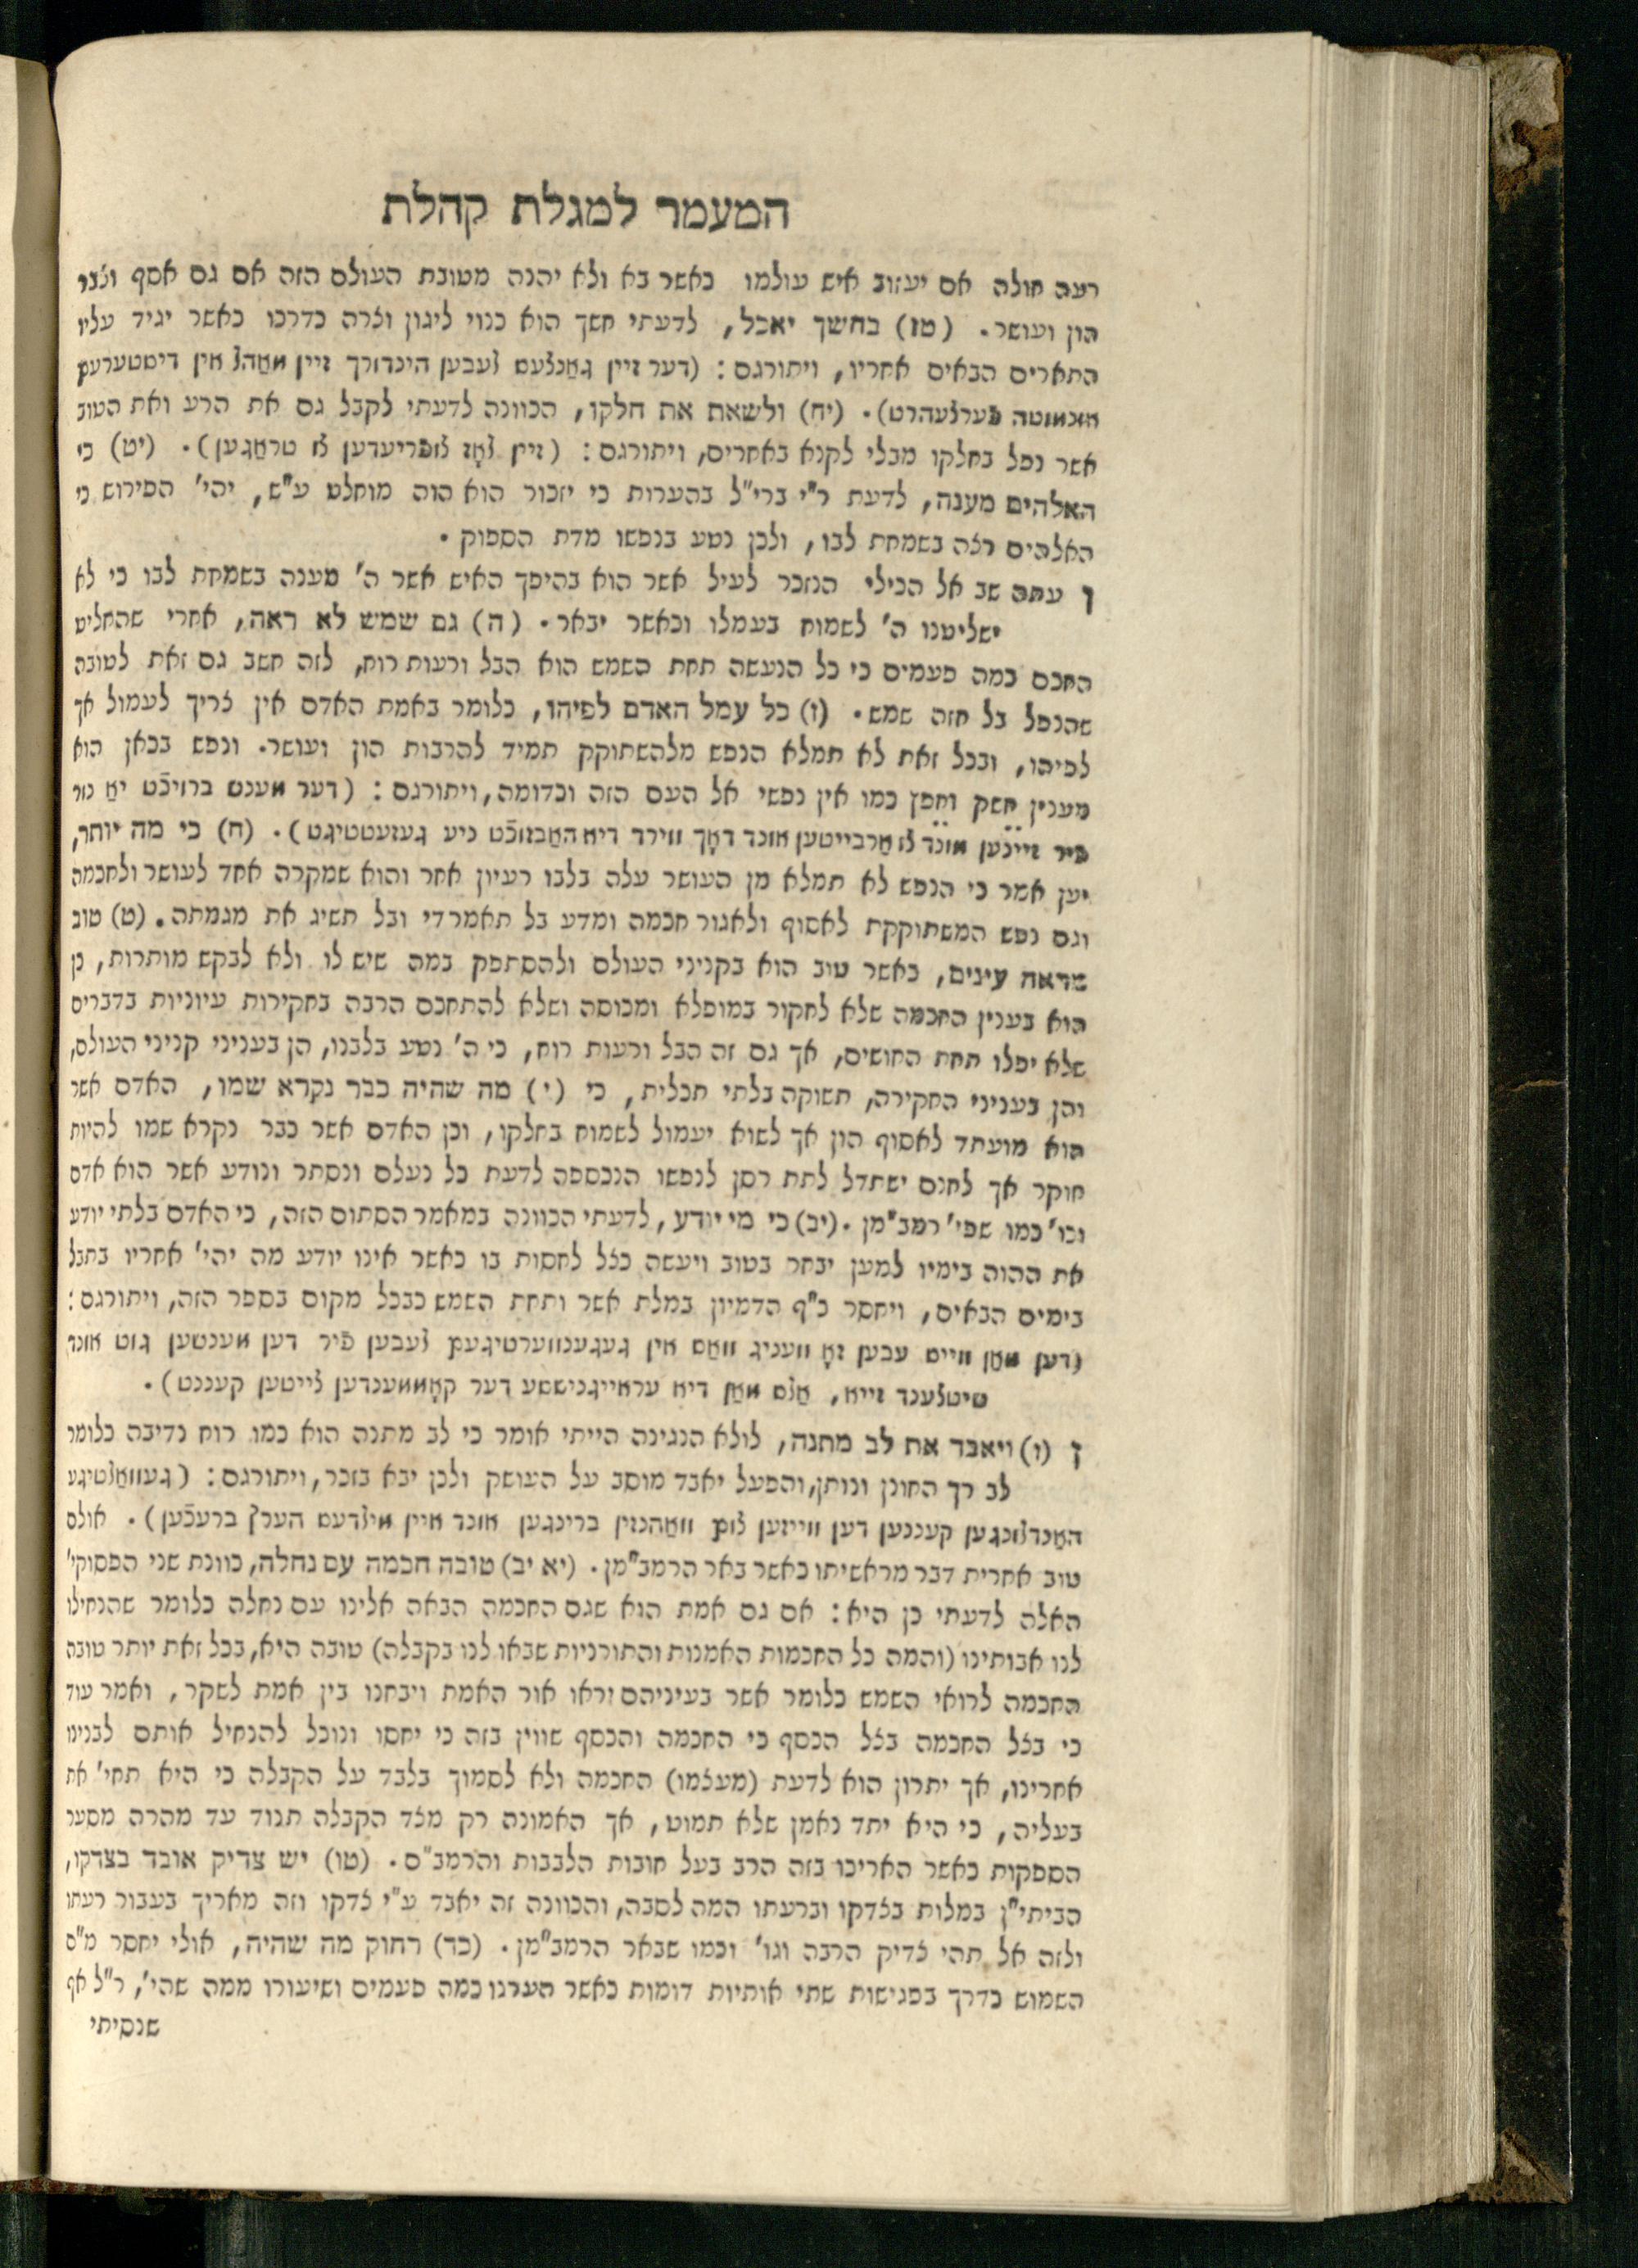 המעמר למגלת קהלת
רעה חולה אם יעזוב איש עולמו כאשר בא ולא יהנה מטובת העולם הזה אם גם אסף וצבר
הון ועושר. (טז) בחשך יאכל, לדעתי חשך הוא כנוי ליגון וצרה כדרכו כאשר יגיד עליו
התארים הבאים אחריו, ויתורגם: (דער זיין גאַנצעס לעבען הינדורך זיין מאַהל אין דיסטערעם
אונמוטה פערצעהרט). (יח) ולשאת את חלקו, הכוונה לדעתי לקבל גם את הרע ואת הטוב
אשר נפל בחלקו מבלי לקנא באחרים, ויתורגם: (זיין לאָז צופריעדען צו טראַגען). (יט) כי
האלהים מענה, לדעת ר"י ברי"ל בהערות כי יזכור הוא הוה מוחלט ע"ש, יהי' הפירוש כי
האלהים רצה בשמחת לבו, ולכן נטע בנפשו מדת הספוק.
ו עתה שב אל הכילי הנזכר לעיל אשר הוא בהיפך האיש אשר ה' מענה בשמחת לבו כי לא
ישליטנו ה' לשמוח בעמלו וכאשר יבאר. (ה) גם שמש לא ראה, אחרי שהחליט
החכם כמה פעמים כי כל הנעשה תחת השמש הוא הבל ורעות רוח, לזה חשב גם זאת לטובה
שהנפל בל חזה שמש. (ז) כל עמל האדם לפיהו, כלומר באמת האדם אין צריך לעמול אך
לפיהו, ובכל זאת לא תמלא הנפש מלהשתוקק תמיד להרבות הון ועושר. ונפש בכאן הוא
מענין חשק וחפץ כמו אין נפשי אל העם הזה וכדומה, ויתורגם: (דער מענש ברויכט יאַ נור
פיר זיינען מונד צו אַרבייטען אונד דאָך ווירד דיא האַבזוכט ניע געזעטטיגט). (ח) כי מה יותר,
יען אמר כי הנפש לא תמלא מן העושר עלה בלבו רעיון אחר והוא שמקרה אחד לעושר ולחכמה
וגם נפש המשתוקקת לאסוף ולאגור חכמה ומדע בל תאמר די ובל תשיג את מגמתה. (ט) טוב
מראה עינים, כאשר טוב הוא בקניני העולם ולהסתפק במה שיש לו ולא לבקש מותרות, כן
הוא בענין החכמה שלא לחקור במופלא ומכוסה ושלא להתחכם הרבה בחקירות עיוניות בדברים
שלא יפלו תחת החושים, אך גם זה הבל ורעות רוח, כי ה' נטע בלבנו, הן בעניני קניני העולם,
והן בעניני החקירה, תשוקה בלתי תכלית, כי (י) מה שהיה כבר נקרא שמו, האדם אשר
הוא מועתד לאסוף הון אך לשוא יעמול לשמוח בחלקו, וכן האדם אשר כבר נקרא שמו להיות
חוקר אך לחנם ישתדל לתת רסן לנפשו הנכספה לדעת כל נעלם ונסתר ונודע אשר הוא אדם
וכו' כמו שפי' רמב"מן. (יב) כי מי יודע, לדעתי הכוונה במאמר הסתום הזה, כי האדם בלתי יודע
את ההוה בימיו למען יבחר בטוב ויעשה כצל לחסות בו כאשר אינו יודע מה יהי' אחריו בתבל
בימים הבאים, ויחסר כ"ף הדמיון במלת אשר ותחת השמש כבכל מקום בספר הזה, ויתורגם:
(דען מאַן ווייס עבען זאָ וועניג וואַס אין געגענווערטיגעם לעבען פיר דען מענשען גוט אונד
שיטצענד זייא, אַלס מאַן דיא עראייגניססע דער קאָממענדען צייטען קעננט).
ז (ז) ויאבד את לב מתנה, לולא הנגינה הייתי אומר כי לב מתנה הוא כמו רוח נדיבה כלומר
לב רך החונן ונותן, והפעל יאבד מוסב על העושק ולכן יבא בזכר, ויתורגם: (געוואַלטיגע
האַנדלונגען קעננען דען ווייזען צום וואַהנזין ברינגען אונד איין מילדעס הערץ ברעכען). אולם
טוב אחרית דבר מראשיתו כאשר באר הרמב"מן. (יא יב) טובה חכמה עם נחלה, כוונת שני הפסוקי'
האלה לדעתי כן היא: אם גם אמת הוא שגם החכמה הבאה אלינו עם נחלה כלומר שהנחילו
לנו אבותינו (והמה כל החכמות האמנות והתורניות שבאו לנו בקבלה) טובה היא, בכל זאת יותר טובה
החכמה לרואי השמש כלומר אשר בעיניהם יראו אור האמת ויבחנו בין אמת לשקר, ואמר עוד
כי בצל החכמה בצל הכסף כי החכמה והכסף שווין בזה כי יחסו ונוכל להנחיל אותם לבנינו
אחרינו, אך יתרון הוא לדעת (מעצמו) החכמה ולא לסמוך בלבד על הקבלה כי היא תחי' את
בעליה, כי היא יתד נאמן שלא תמוט, אך האמונה רק מצד הקבלה תנוד עד מהרה מסער
הספקות כאשר האריכו בזה הרב בעל חובות הלבבות והרמב"ם. (טו) יש צדיק אובד בצדקו,
הביתי"ן במלות בצדקו וברעתו המה לסבה, והכוונה זה יאבד ע"י צדקו וזה מאריך בעבור רעתו
ולזה אל תהי צדיק הרבה וגו' וכמו שבאר הרמב"מן. (כד) רחוק מה שהיה, אולי יחסר מ"ם
השמוש כדרך בפגישות שתי אותיות דומות כאשר הערנו כמה פעמים ושיעורו ממה שהי', ר"ל אף
שנסיתי